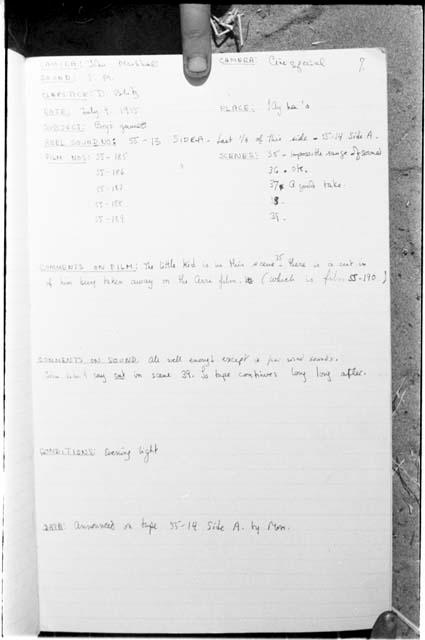 CAMERA: John Marshall CAMERA: Cine Special 7.
SOUND: J. M.
CLAPSTICK: D.
DATE: July 9. 1955 PLACE: !Kay ha's
SUBJECT: Boys
REEL SOUND NO: 55-13 SIDE A. Last 1/4 of this side - 55-14 Side A.
FILM NOS: 55-185 SCENES: 35 - impossible range of sound
55-186 36. ok.
55-187 37. A good take.
55-188 38.
55-189 39.
COMMENTS ON FILM: The little kid is in this scene 35 there is a cut in
of him being taken away on the Arri film. (which is film 55-190)
COMMENTS ON SOUND: All well enough except a few wind sounds.
John didn't say cut in scene 39. So tape continues long long after.
CONDITIONS: Evening light
DATA: Announced on tape 55-14 Side A. by Mon.